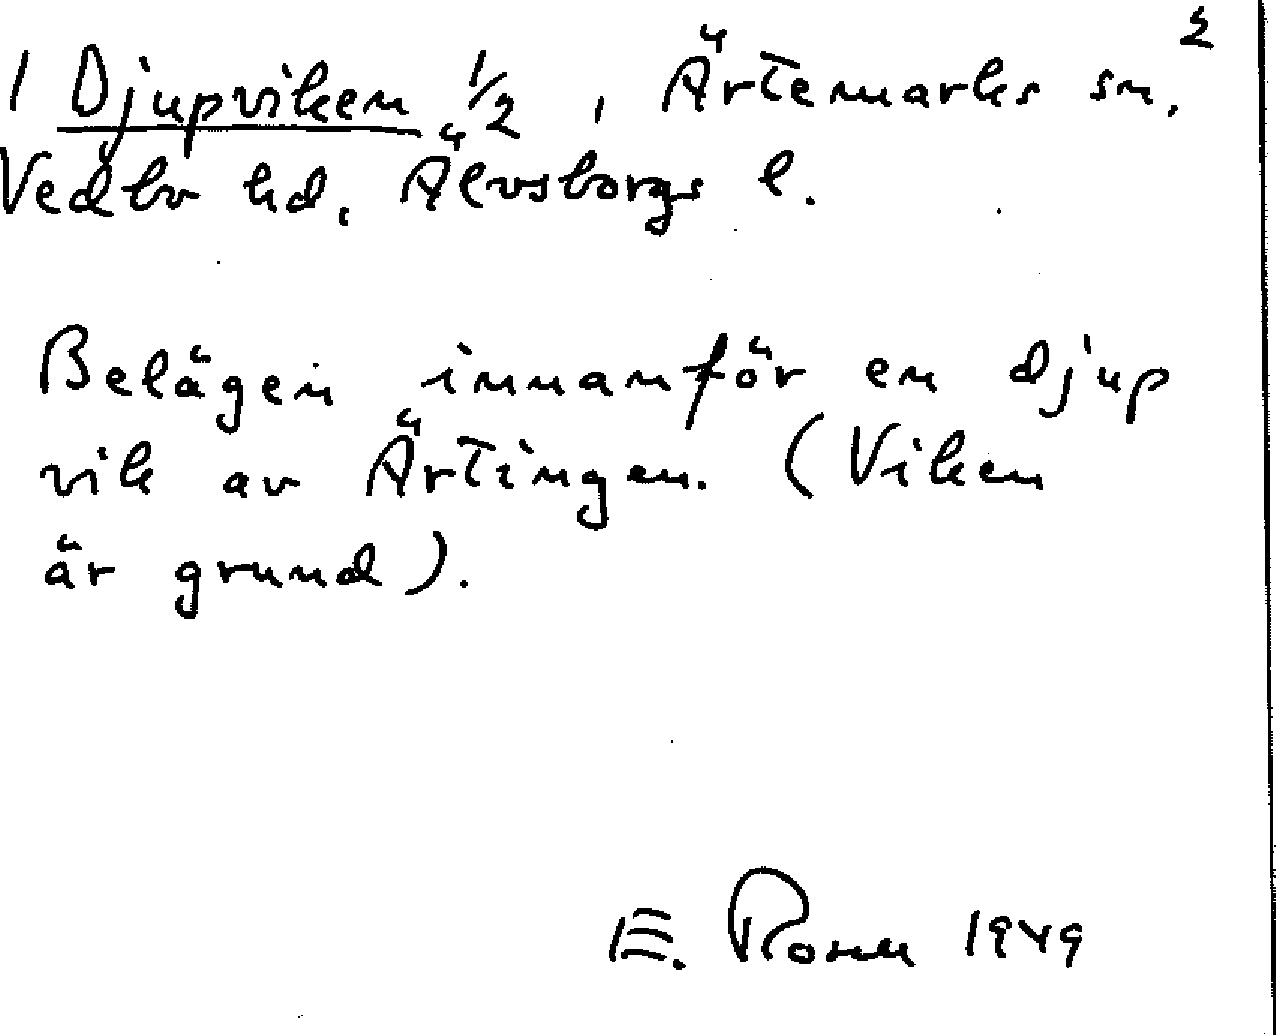 2
1 Djupviken 1/2, Ärtemarks sn.
Vedbo hd, Älvsborgs l.
Belägen innanför en djup
vik av Ärtingen. (Viken
är grund).
E. Rosell 1949